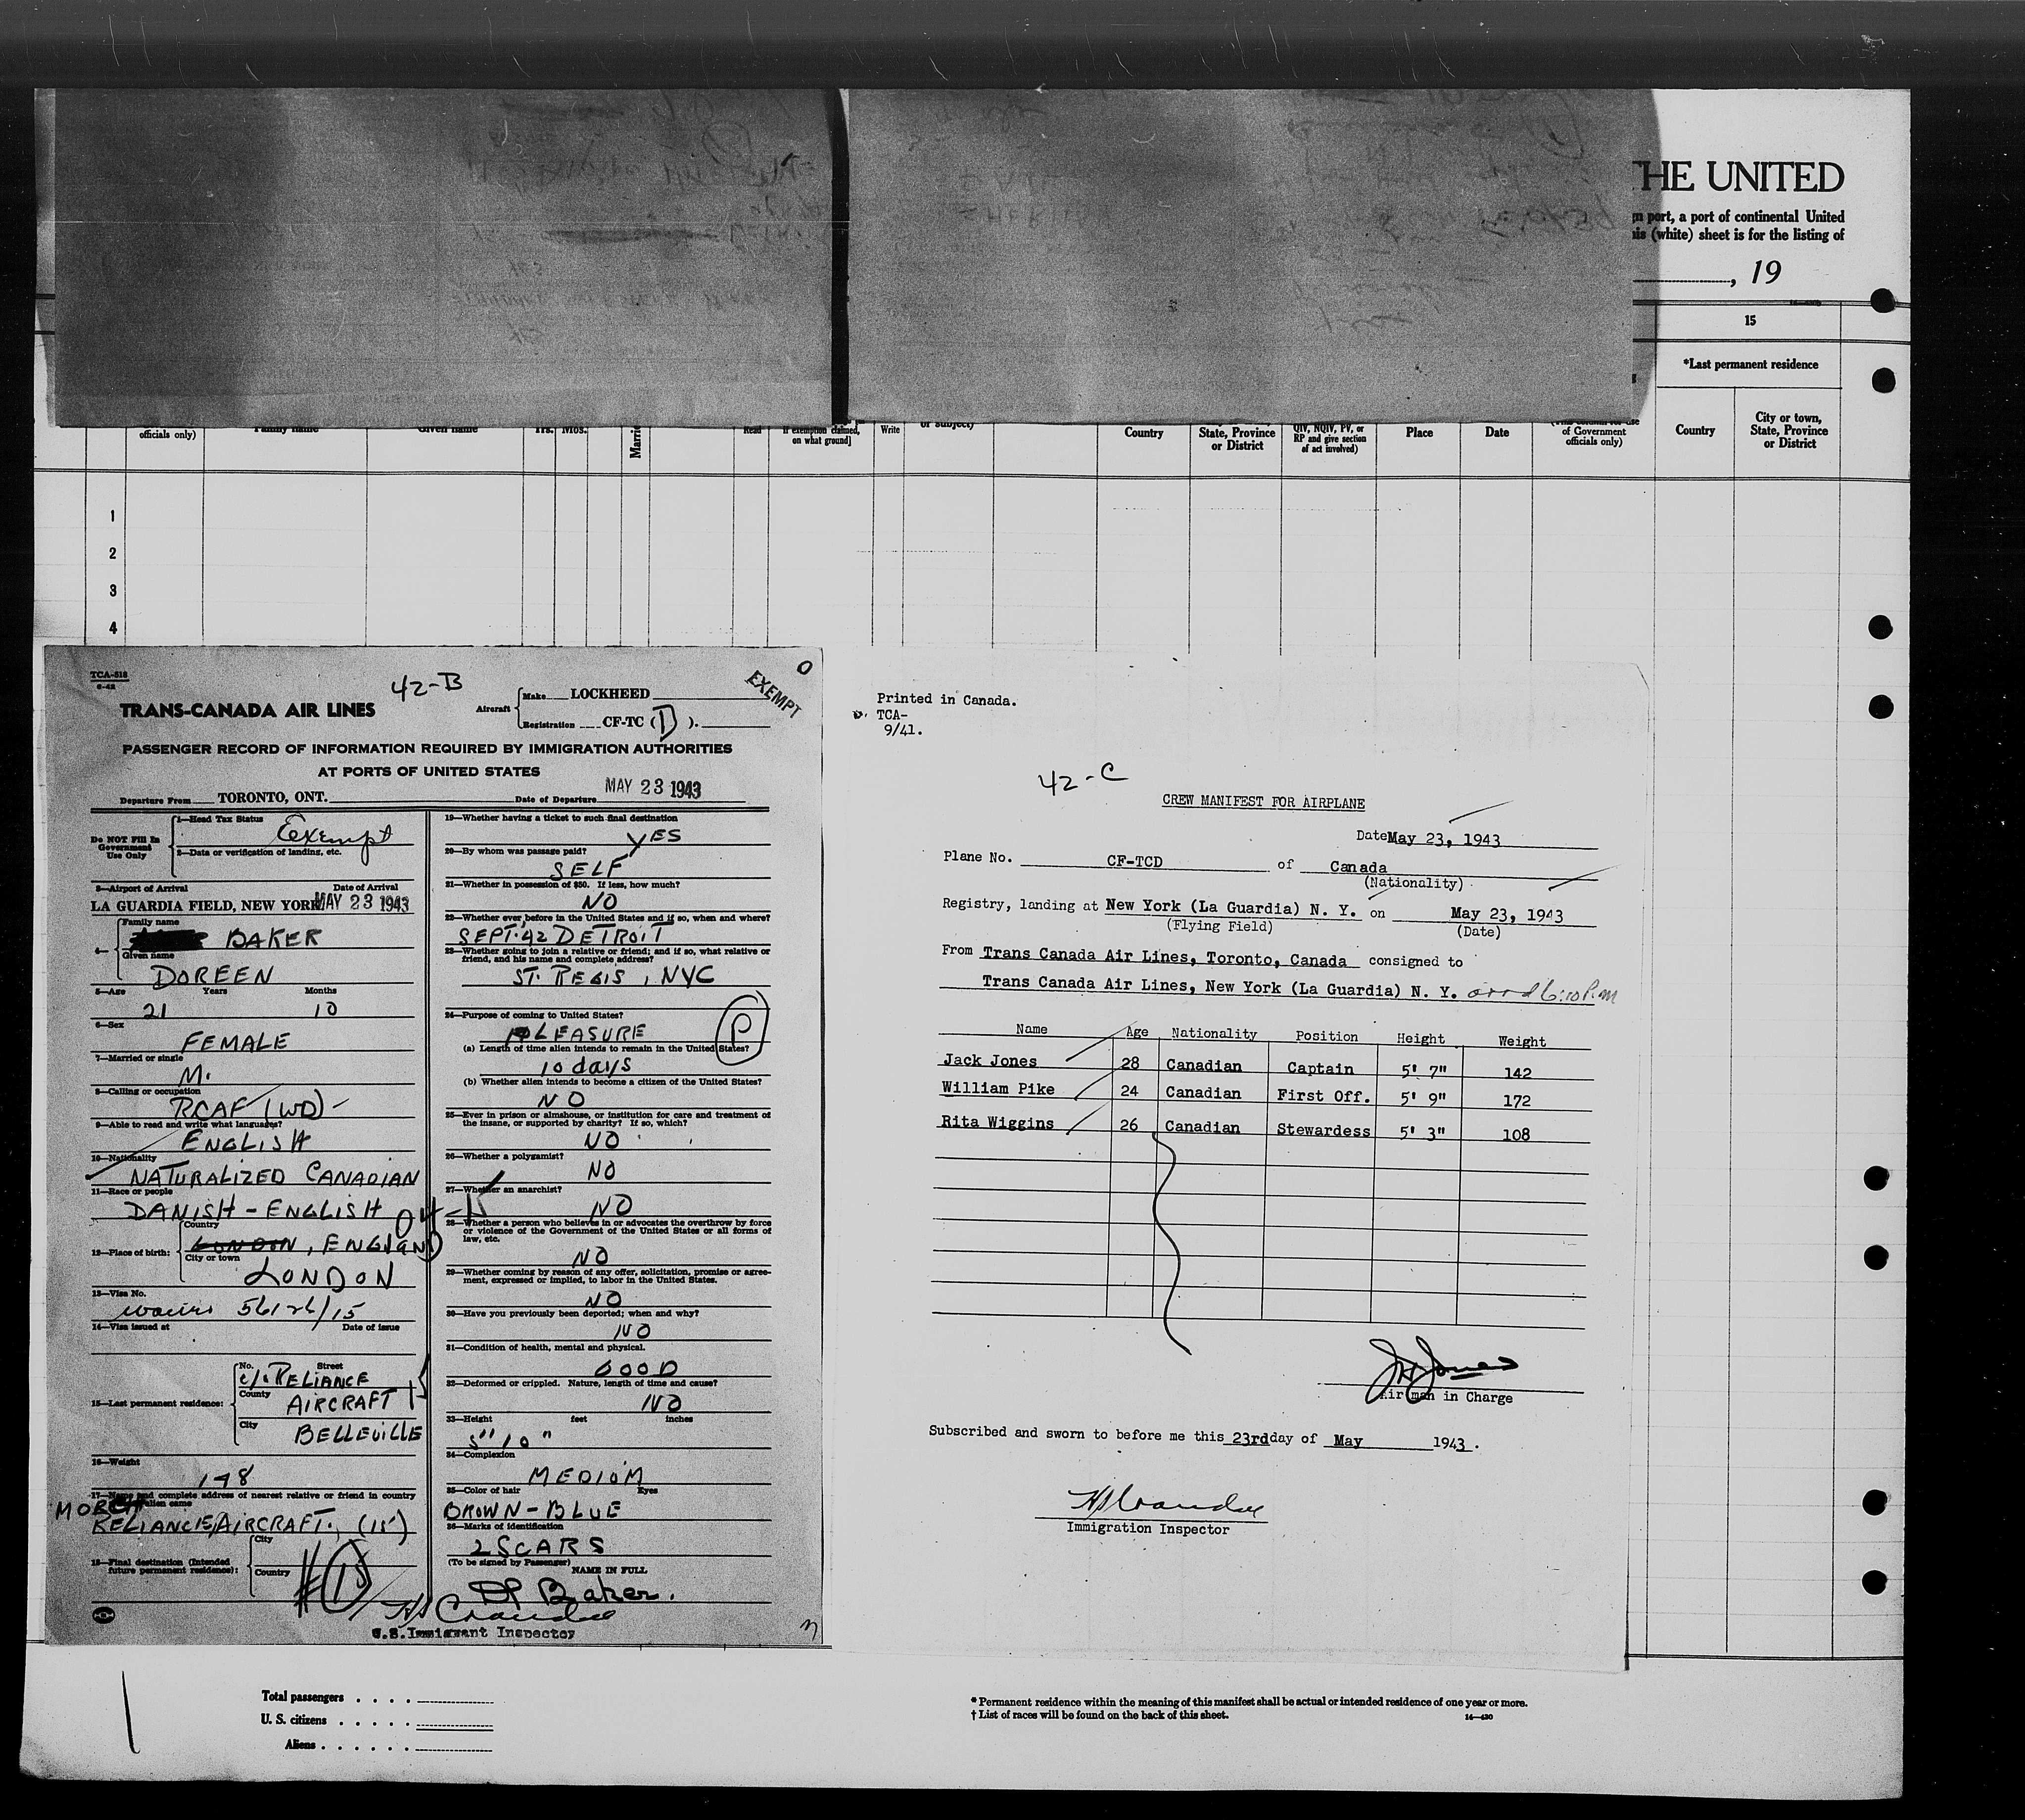 THE UNITED
port, a port of continental United
(white) sheet is for the listing of
, 19
15
*Last permanent residence
officials only)
Family name
Given name
Yrs.
Mos.
Read
on what ground]
Write
or subject)
Country
State, Province
or District
QIV, NQIV, PV, or
RP and give section
of act involved)
Place
Date
of Government
officials only)
Country
City or town,
State, Province
or District
1
2
3
4
TCA-518
6-42
42-B
EXEMPT
TRANS-CANADA AIR LINES
Aircraft
Make LOCKHEED
Registration CF-TC (D).
PASSENGER RECORD OF INFORMATION REQUIRED BY IMMIGRATION AUTHORITIES
AT PORTS OF UNITED STATES
Departure From TORONTO, ONT. Date of Departure MAY 23 1943
Do NOT Fill In
Government
Use Only
1—Head Tax Status
Exempt
2—Data or verification of landing, etc.
3—Airport of Arrival Date of Arrival
LA GUARDIA FIELD, NEW YORK MAY 23 1943
4—
Family name
BAKER
Given name
DOREEN
5—Age Years Months
21 10
6—Sex
FEMALE
7—Married or single
M.
8—Calling or occupation
RCAF (WD) -
9—Able to read and write what languages?
ENGLISH
10—Nationality
NATURALIZED CANADIAN
11—Race or people
DANISH - ENGLISH
12—Place of birth:
Country
LONDON, ENGLAND
City or town
LONDON
13—Visa No.
56126/15
14—Visa issued at Date of issue
15—Last permanent residence:
No. Street
c/o RELIANCE
County
AIRCRAFT
City
BELLEVILLE
16—Weight
148
17—Name and complete address of nearest relative or friend in country
alien came
RELIANCE AIRCRAFT. (15)
18—Final destination (Intended
future permanent residence):
City
Country
19—Whether having a ticket to such final destination
YES
20—By whom was passage paid?
SELF
21—Whether in possession of $50. If less, how much?
NO
22—Whether ever before in the United States and if so, when and where?
SEPT. 42 DETROIT
23—Whether going to join a relative or friend; and if so, what relative or
friend, and his name and complete address?
ST. REGIS, NYC
24—Purpose of coming to United States?
PLEASURE
P
(a) Length of time alien intends to remain in the United States?
10 days
(b) Whether alien intends to become a citizen of the United States?
NO
25—Ever in prison or almshouse, or institution for care and treatment of
the insane, or supported by charity? If so, which?
NO
26—Whether a polygamist?
NO
27—Whether an anarchist?
NO
28—Whether a person who believes in or advocates the overthrow by force
or violence of the Government of the United States or all forms of
law, etc.
NO
29—Whether coming by reason of any offer, solicitation, promise or agree-
ment, expressed or implied, to labor in the United States.
NO
30—Have you previously been deported; when and why?
NO
31—Condition of health, mental and physical.
GOOD
32—Deformed or crippled. Nature, length of time and cause?
NO
33—Height feet inches
5" 10"
34—Complexion
MEDIUM
35—Color of hair Eyes
BROWN - BLUE
36—Marks of identification
2 SCARS
(To be signed by Passenger)
NAME IN FULL
D Baker.
U.S. Immigrant Inspector
Printed in Canada.
TCA-
9/41.
42-C
CREW MANIFEST FOR AIRPLANE
Date May 23, 1943
Plane No. CF-TCD of Canada
(Nationality)
Registry, landing at New York (La Guardia) N. Y. on May 23, 1943
(Flying Field) (Date)
From Trans Canada Air Lines, Toronto, Canada consigned to
Trans Canada Air Lines, New York (La Guardia) N. Y. arrd 6:10 P.m
Name Age Nationality Position Height Weight
Jack Jones 28 Canadian Captain 5' 7" 142
William Pike 24 Canadian First Off. 5' 9" 172
Rita Wiggins 26 Canadian Stewardess 5' 3" 108
Jones
Airman in Charge
Subscribed and sworn to before me this 23rd day of May 1943.
Immigration Inspector
Total passengers . . . .
U. S. citizens . . . . .
Aliens . . . . . .
* Permanent residence within the meaning of this manifest shall be actual or intended residence of one year or more.
† List of races will be found on the back of this sheet.